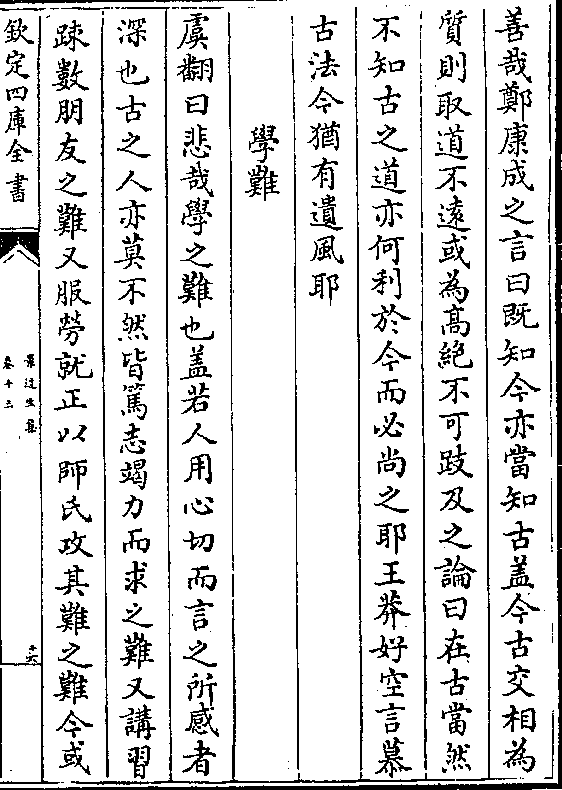 善哉鄭康成之言曰既知今亦當知古盖今古交相為
質則取道不遠或為髙絶不可跂及之論曰在古當然
不知古之道亦何利於今而必尚之耶王莽好空言慕
古法今猶有遺風耶
學難
虞翻曰悲哉學之難也盖若人用心切而言之所感者
深也古之人亦莫不然皆篤志竭力而求之難又講習
疎數朋友之難又服勞就正以師氏攻其難之難今或
欽定四庫全書
景迂生集
卷十三
十六